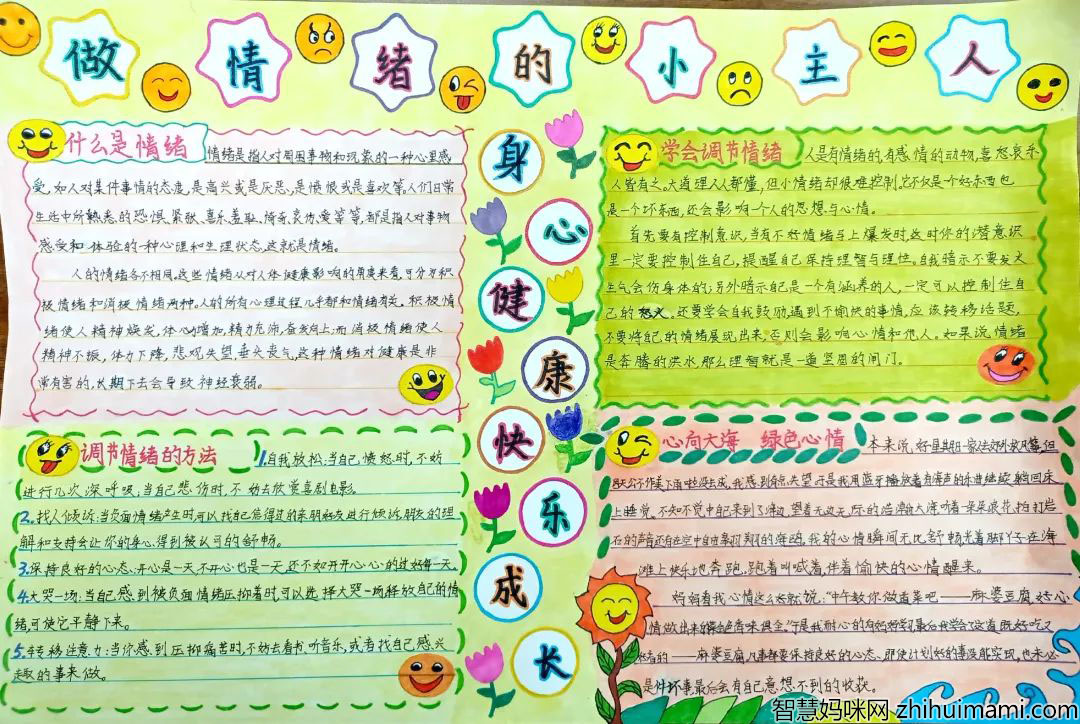 做情绪的小主人
什么是情绪
情绪是指人对周围事物和现象的一种心里感
受,如人对某件事情的态度,是高兴或是厌恶、是愤恨或是喜欢等,人们日常
生活中所熟悉的恐惧、紧张、喜乐、羞耻、惊奇、哀伤、爱等等,都是指人对事物
感受和体验的一种心理和生理状态,这就是情绪。
人的情绪各不相同,这些情绪从对人体健康影响的角度来看,可分为积
极情绪和消极情绪两种。人的所有心理过程几乎都和情绪有关。积极情
绪使人精神焕发,体力增加,精力充沛,奋发向上;而消极情绪使人
精神不振,体力下降,悲观失望,垂头丧气,这种情绪对健康是非
常有害的,长期下去会导致神经衰弱。
调节情绪的方法
1.自我放松:当自己愤怒时,不妨
进行几次深呼吸,当自己悲伤时,不妨去欣赏喜剧电影。
2.找人倾诉:当负面情绪产生时可以找自己信得过的亲朋好友进行倾诉,朋友的理
解和支持会让你的身心得到被认可的舒畅。
3.保持良好的心态:开心是一天,不开心也是一天,还不如开开心心的过好每一天。
4.大哭一场:当自己感到被负面情绪压抑着时,可以选择大哭一场释放自己的情
绪,可使它平静下来。
5.转移注意力:当你感到压抑痛苦时,不妨去看书,听音乐,或者找自己感兴
趣的事来做。
身心健康快乐成长
学会调节情绪
人是有情绪的,有感情的动物,喜怒哀乐
人皆有之。大道理人人都懂,但小情绪却很难控制,它不仅是个好东西也
是一个坏东西,还会影响一个人的思想与心情。
首先要有控制意识,当有不好情绪马上爆发时,这时你的潜意识
里一定要控制住自己,提醒自己保持理智与理性。自我暗示不要发火
生气会伤身体的;另外暗示自己是一个有涵养的人,一定可以控制住自
己的怒火,还要学会自我鼓励,遇到不愉快的事情,应该转移话题,
不要将自己的情绪展现出来,否则会影响心情和他人。如果说,情绪
是奔腾的洪水,那么理智就是一道坚固的闸门。
心向大海 绿色心情
本来说,好星期一家去郊外放风筝,但
天公不作美下雨,我感到有点失望,于是我用蓝牙播放着有声的乐曲继续躺回床
上睡觉。不知不觉中,我来到了海边,望着无边无际的浩瀚大海,听着一朵朵浪花,拍打岩
石的声音,还有在空中自由翱翔的海鸥,我的心情瞬间无比舒畅,光着脚丫子在海
滩上快乐地奔跑。跑着叫喊着,伴着愉快的心情醒来。
妈妈看我心情这么好就说:“中午教你做道菜吧——麻婆豆腐,好心
情做出来的绿色香味俱全。”于是我耐心的好好学习,最后我学会了这道既好吃又
好看的——麻婆豆腐,凡事都要保持良好的心态,即使计划好的事没能实现,也未必
是件坏事,最后会有自己意想不到的收获。
智慧妈咪网 zhihuimami.com